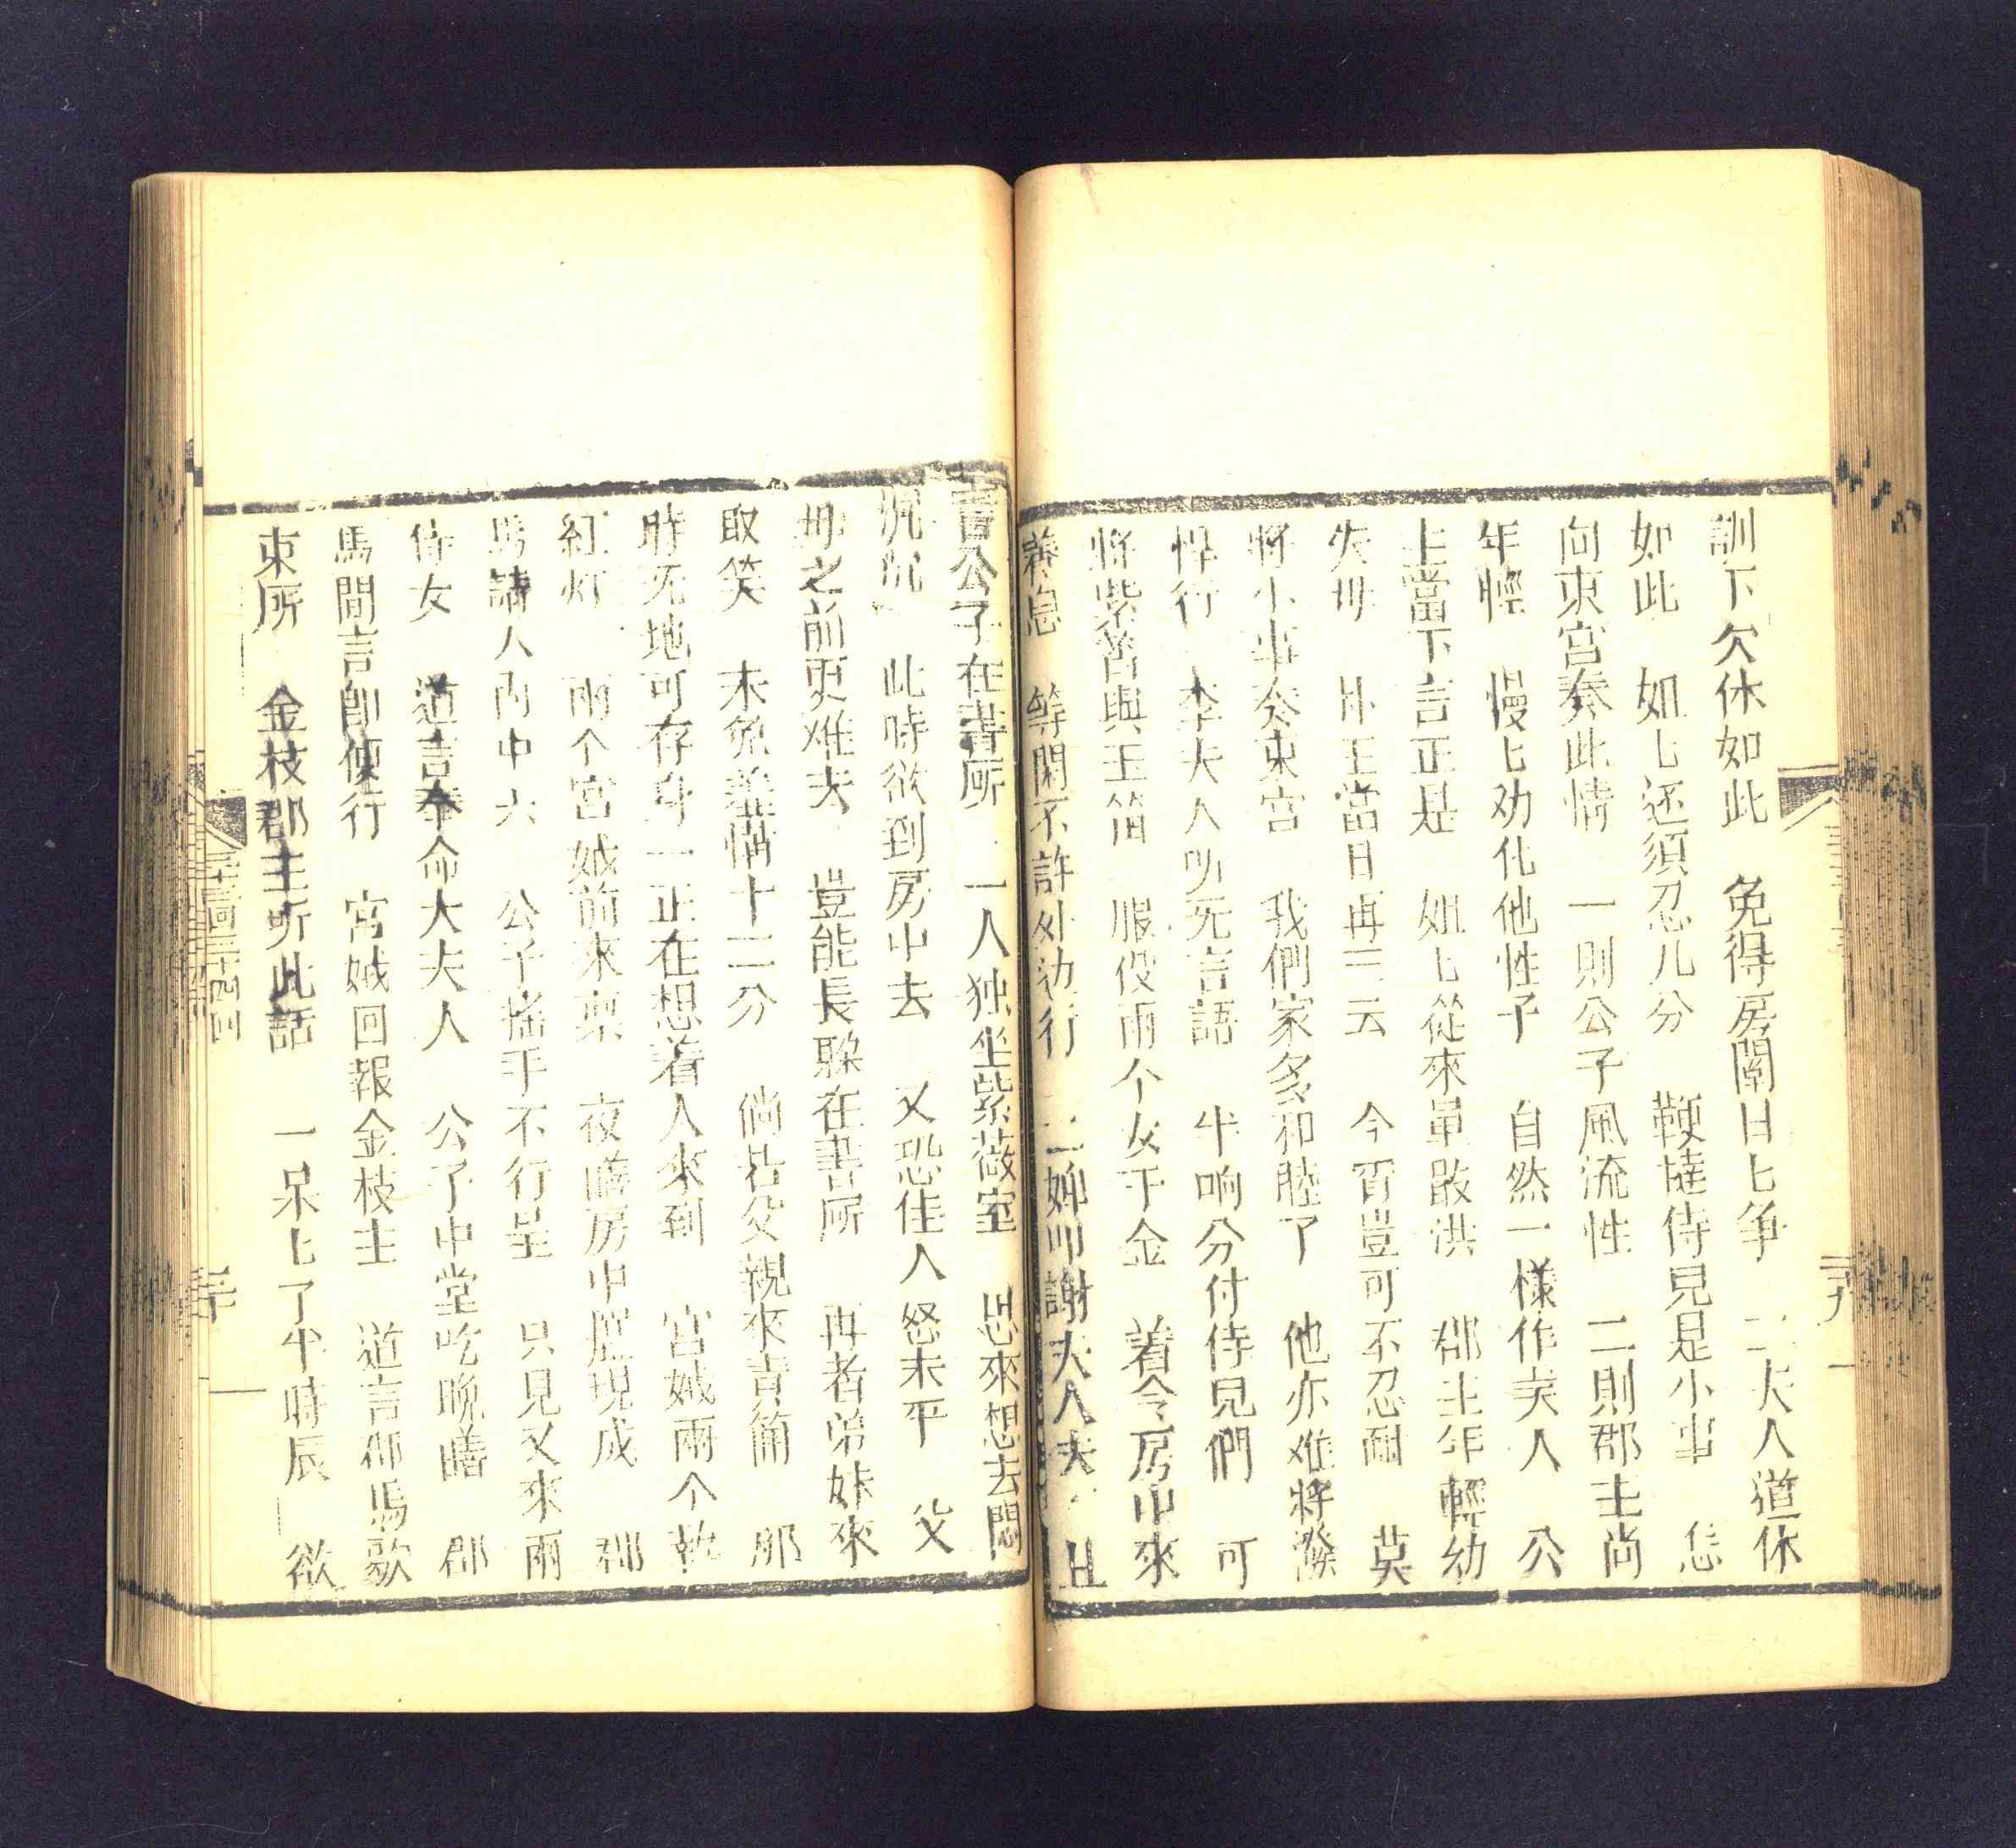 訓下欠休如此 免得房闈日匕争 二夫人道休
如此 如匕还須忍几分 鞭撻侍児是小事 恁
向東宮奏此情 一則公子風流性 二則郡主尚
年輕 慢匕劝化他性子 自然一樣作美人 公
上當下言正是 如匕從來单啟洪 郡主年輕幼
失母 王當日再三云 今宵豈可不忍耐 莫
將小事奏東宮 我們家多和睦了 他亦难將潑
悍行 李夫人听无言語 半响分付侍児們 可
將紫茜與玉笛 服役兩个女千金 着令房中來
養息 等閑不許外边行 二婢叩謝夫人夫 且
言公子在書所 一人独坐紫薇室 思來想去悶
沉沉 此時欲到房中去 又恐佳人怒未平 父
母之前更难去 豈能長躱在書所 再者弟妹來
取笑 未免羞慚十二分 倘若父親來責簡 那
時无地可存身 正在想着人來到 宮娥兩个執
紅灯 兩个宮娥前來禀 夜膳房中擺現成 郡
馬請人內中去 公子搖手不行走 只見又來兩
侍女 道言奉命大夫人 公子中堂吃晚膳 郡
馬聞言卽便行 宮娥回報金枝主 道言郡馬歇
東所 金枝郡主听此話 一呆匕了半時辰 欲